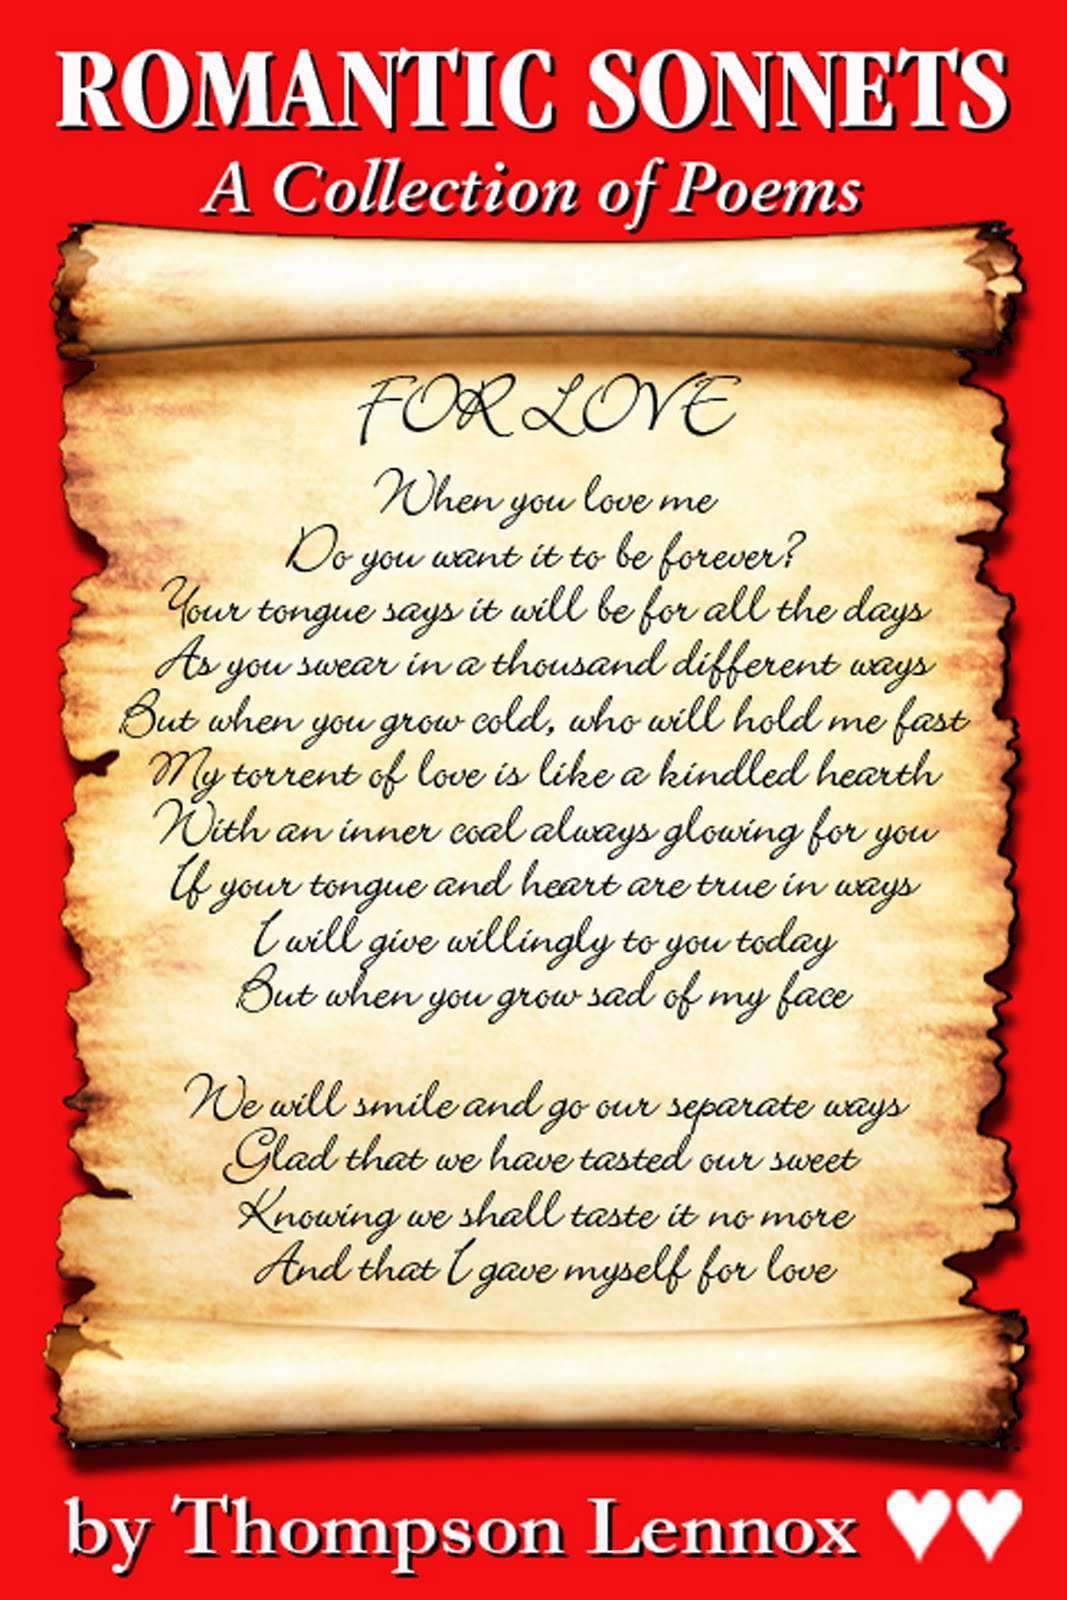 ROMANTIC SONNETS
A Collection of Poems
FOR LOVE
When you love me
Do you want it to be forever?
Your tongue says it will be for all the days
As you swear in a thousand different ways
But when you grow cold, who will hold me fast
My torrent of love is like a kindled hearth
With an inner coal always glowing for you
If your tongue and heart are true in ways
I will give willingly to you today
But when you grow sad of my face
We will smile and go our separate ways
Glad that we have tasted our sweet
Knowing we shall taste it no more
And that I gave myself for love
by Thompson Lennox